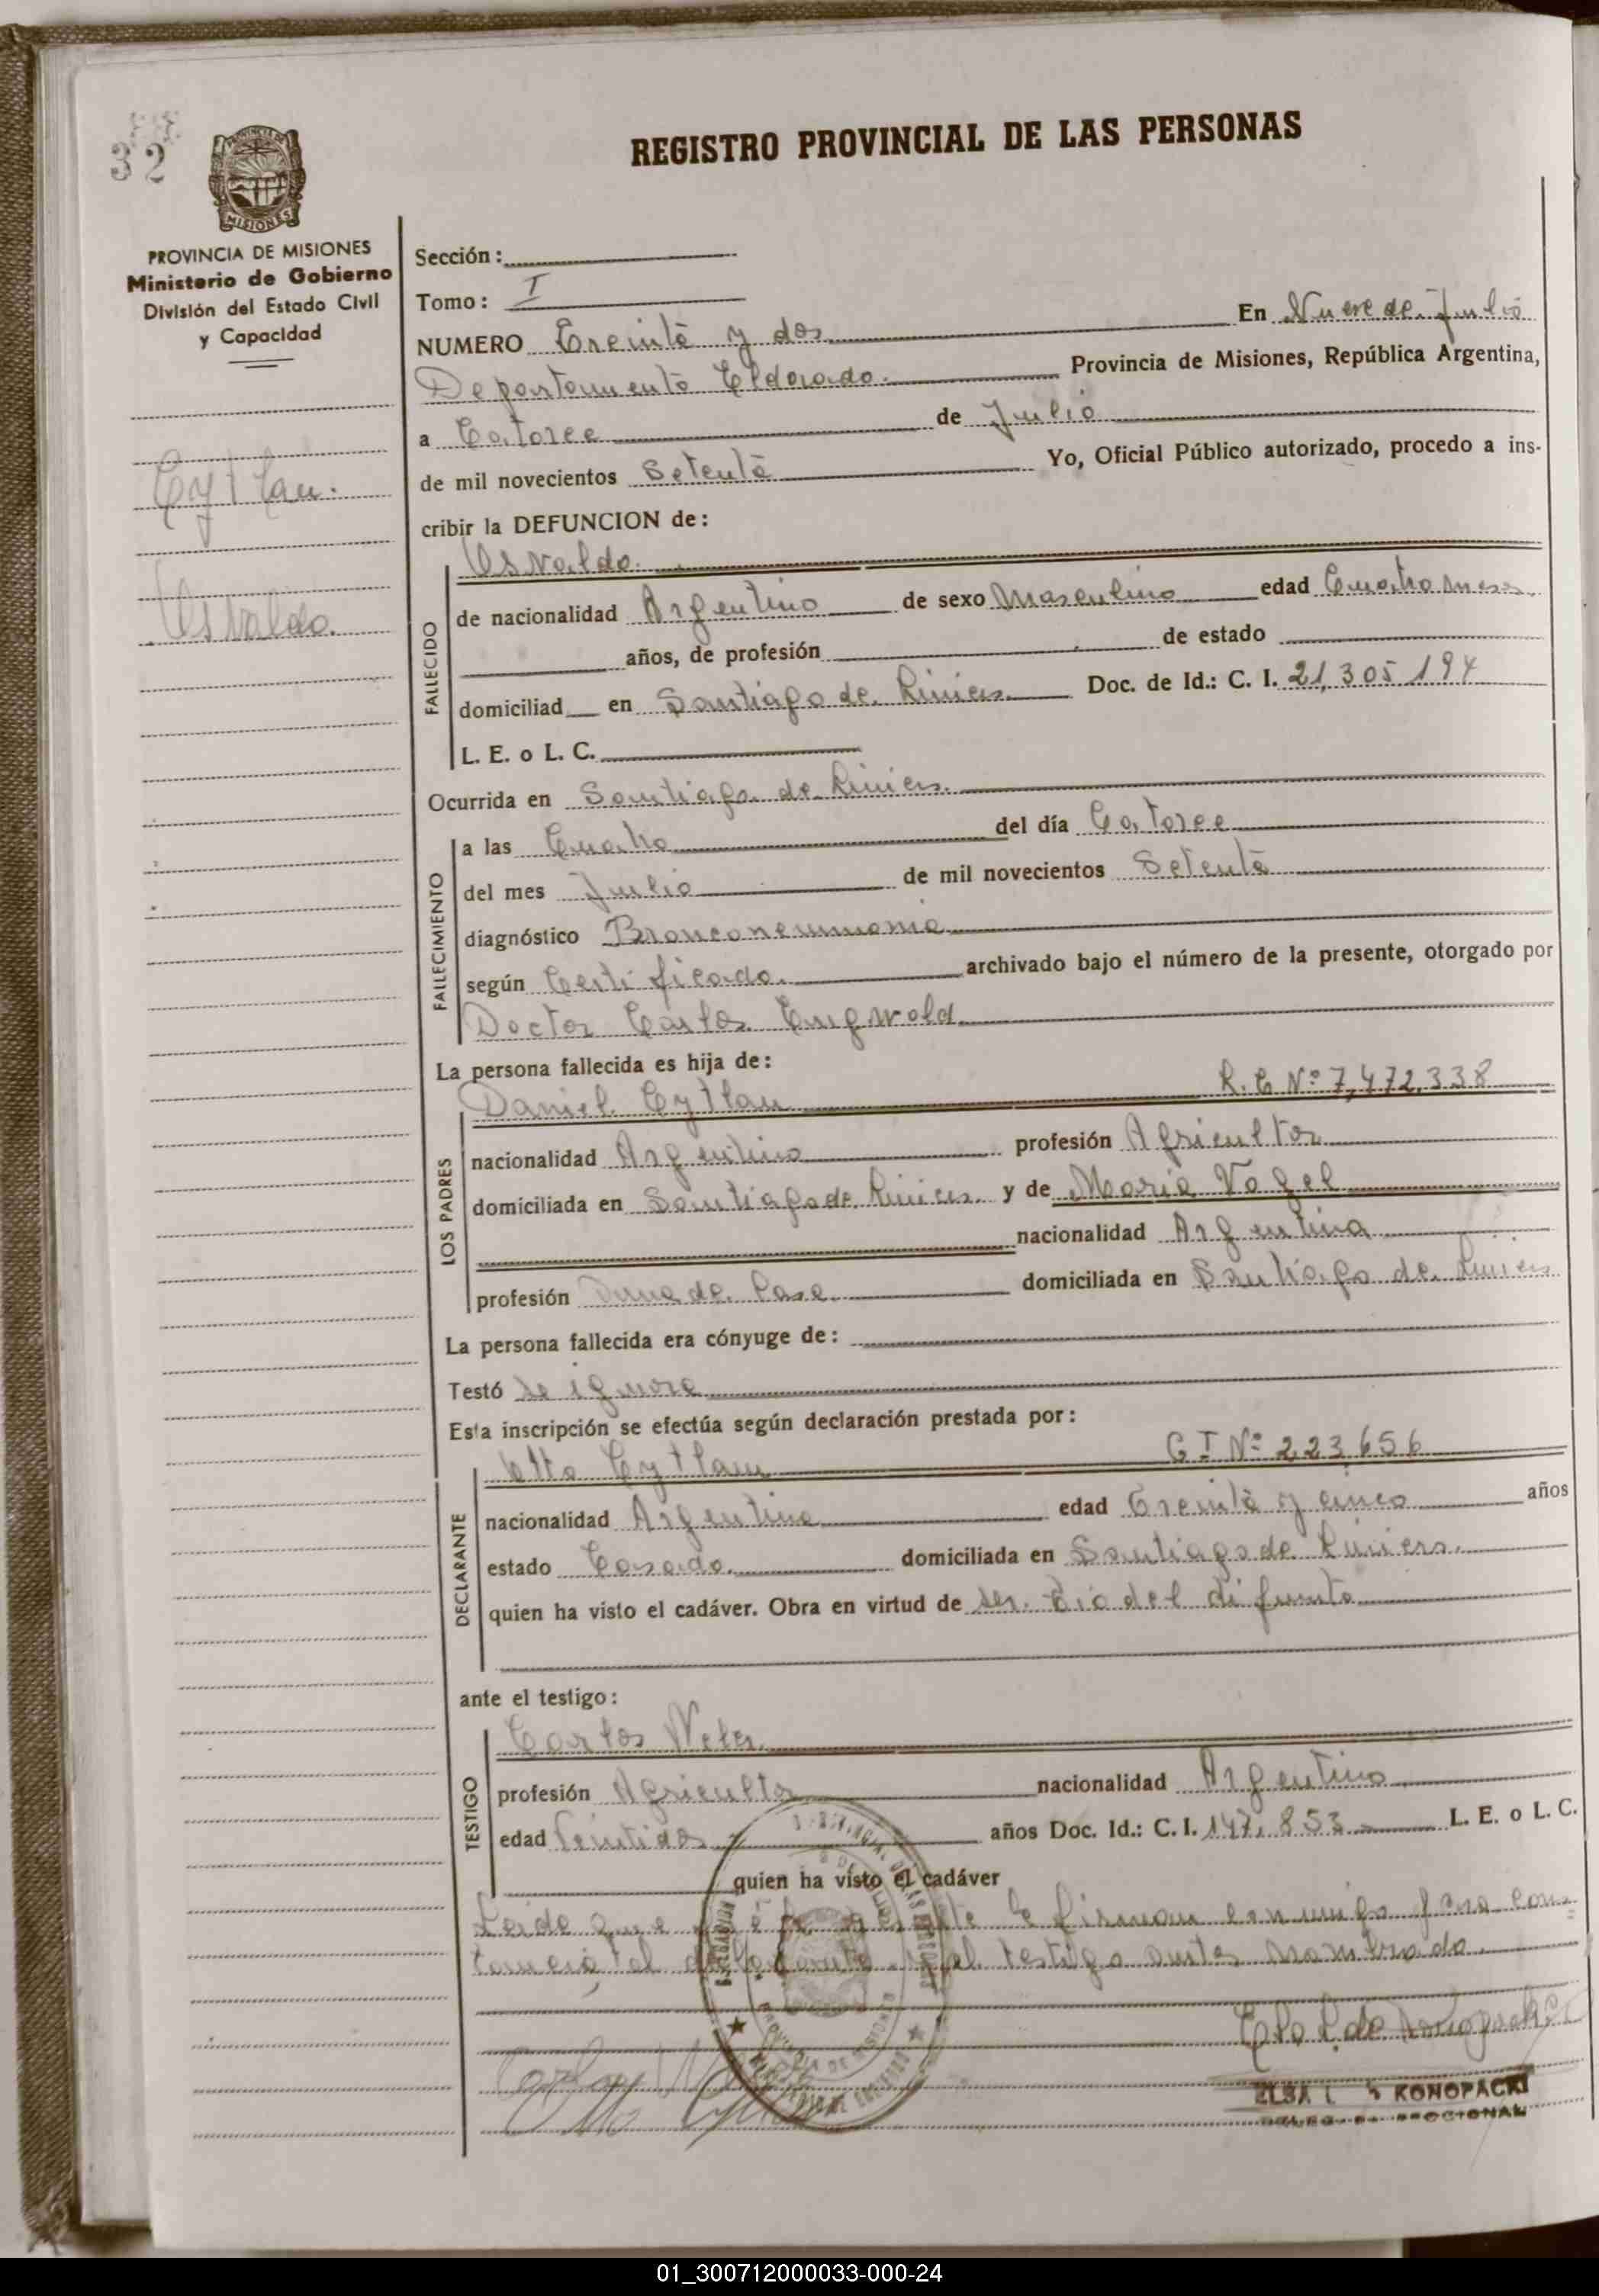 32
PROVINCIA DE
MISIONES
REGISTRO PROVINCIAL DE LAS PERSONAS
PROVINCIA DE MISIONES
Ministerio de Gobierno
División del Estado Civil
y Capacidad
Cytlau.
Osvaldo.
Sección:
Tomo: I
NUMERO Treinta y dos En Nueve de Julio
Departamento Eldorado. Provincia de Misiones, República Argentina,
a Catorce de Julio
de mil novecientos Setenta Yo, Oficial Público autorizado, procedo a ins-
cribir la DEFUNCION de:
Osvaldo.
FALLECIDO
de nacionalidad Argentino de sexo Masculino edad Cuatro meses.
años, de profesión de estado
domiciliad en Santiago de Liniers. Doc. de Id.: C. I. 21,305 194
L. E. o L. C.
Ocurrida en Santiago de Liniers.
FALLECIMIENTO
a las Cuatro del día Catorce
del mes Julio de mil novecientos Setenta
diagnóstico Bronconeumonia
según Certificado. archivado bajo el número de la presente, otorgado por
Doctor Carlos
La persona fallecida es hija de:
Daniel Cytlau L.E Nº 7,472,338
LOS PADRES
nacionalidad Argentino profesión Agricultor
domiciliada en Santiago de Liniers. y de Maria Vogel
nacionalidad Argentina
profesión Ama de Casa domiciliada en Santiago de Liniers
La persona fallecida era cónyuge de:
Testó se ignora
Esta inscripción se efectúa según declaración prestada por:
Otto Cytlau C I Nº 223,656
DECLARANTE
nacionalidad Argentino edad Treinta y cinco años
estado Casado. domiciliada en Santiago de Liniers.
quien ha visto el cadáver. Obra en virtud de ser Tio del difunto
ante el testigo:
Carlos
TESTIGO
profesión Agricultor nacionalidad Argentino
edad Veintidos años Doc. Id.: C. I. 147,853 L. E. o L. C.
quien ha visto el cadáver
Leida que fué la presente la firman conmigo para cons-
tancia, el declarante y el testigo antes nombrado.
KONOPACKI
01_300712000033-000-24